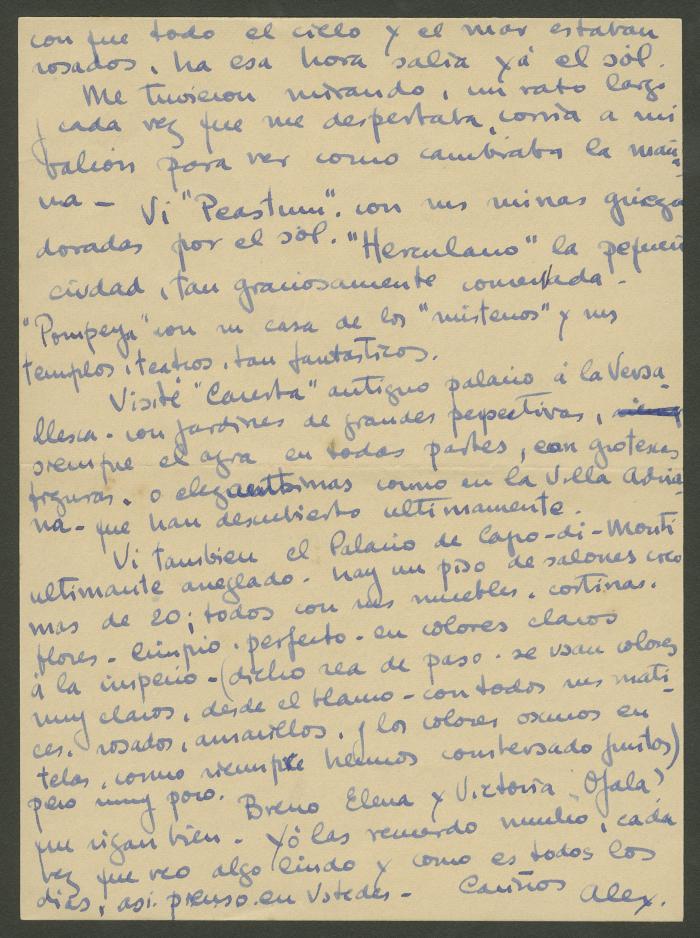 con que todo el cielo y el mar estaban
rosados, ha esa hora salia yá el sól.
Me tuvieron mirando, un rato largo
y cada vez que me despertaba, corria a mi
balcón para ver como cambiaba la maña-
na - Vi "Peastum". con sus minas griegas
doradas por el sól. "Herculano" la pequeñ
ciudad, tan graciosamente comentada -
"Pompeya" con su casa de los "misterios" y sus
templos, teatros, tan fantasticos.
Visité "Caserta" antiguo palacio á la Versa
llesca - con jardines de grandes pespectivas,
siempre el agua en todas partes, con grotescas
figuras, o elegantisimas como en la Villa Adria-
na - que han descubierto ultimamente.
Vi tambien el Palacio de Capo-di-Monti
ultimante aneglado - hay un piso de salones como
mas de 20; todos con sus muebles, cortinas.
flores - limpio - perfecto - en colores claros
á la imperio - (dicho sea de paso - se usan colores
muy claros, desde el blanco - con todos sus mati-
ces, rosados, amarillos, y los colores oscuros en
telas, como siempre hemos conversado juntos)
pero muy poco. Bueno Elena y Victoria "Ojalá"
que sigan bien - Yó las recuerdo mucho, cada
vez que veo algo lindo y como es todos los
dias, asi pienso en Ustedes - Cariños Alex.